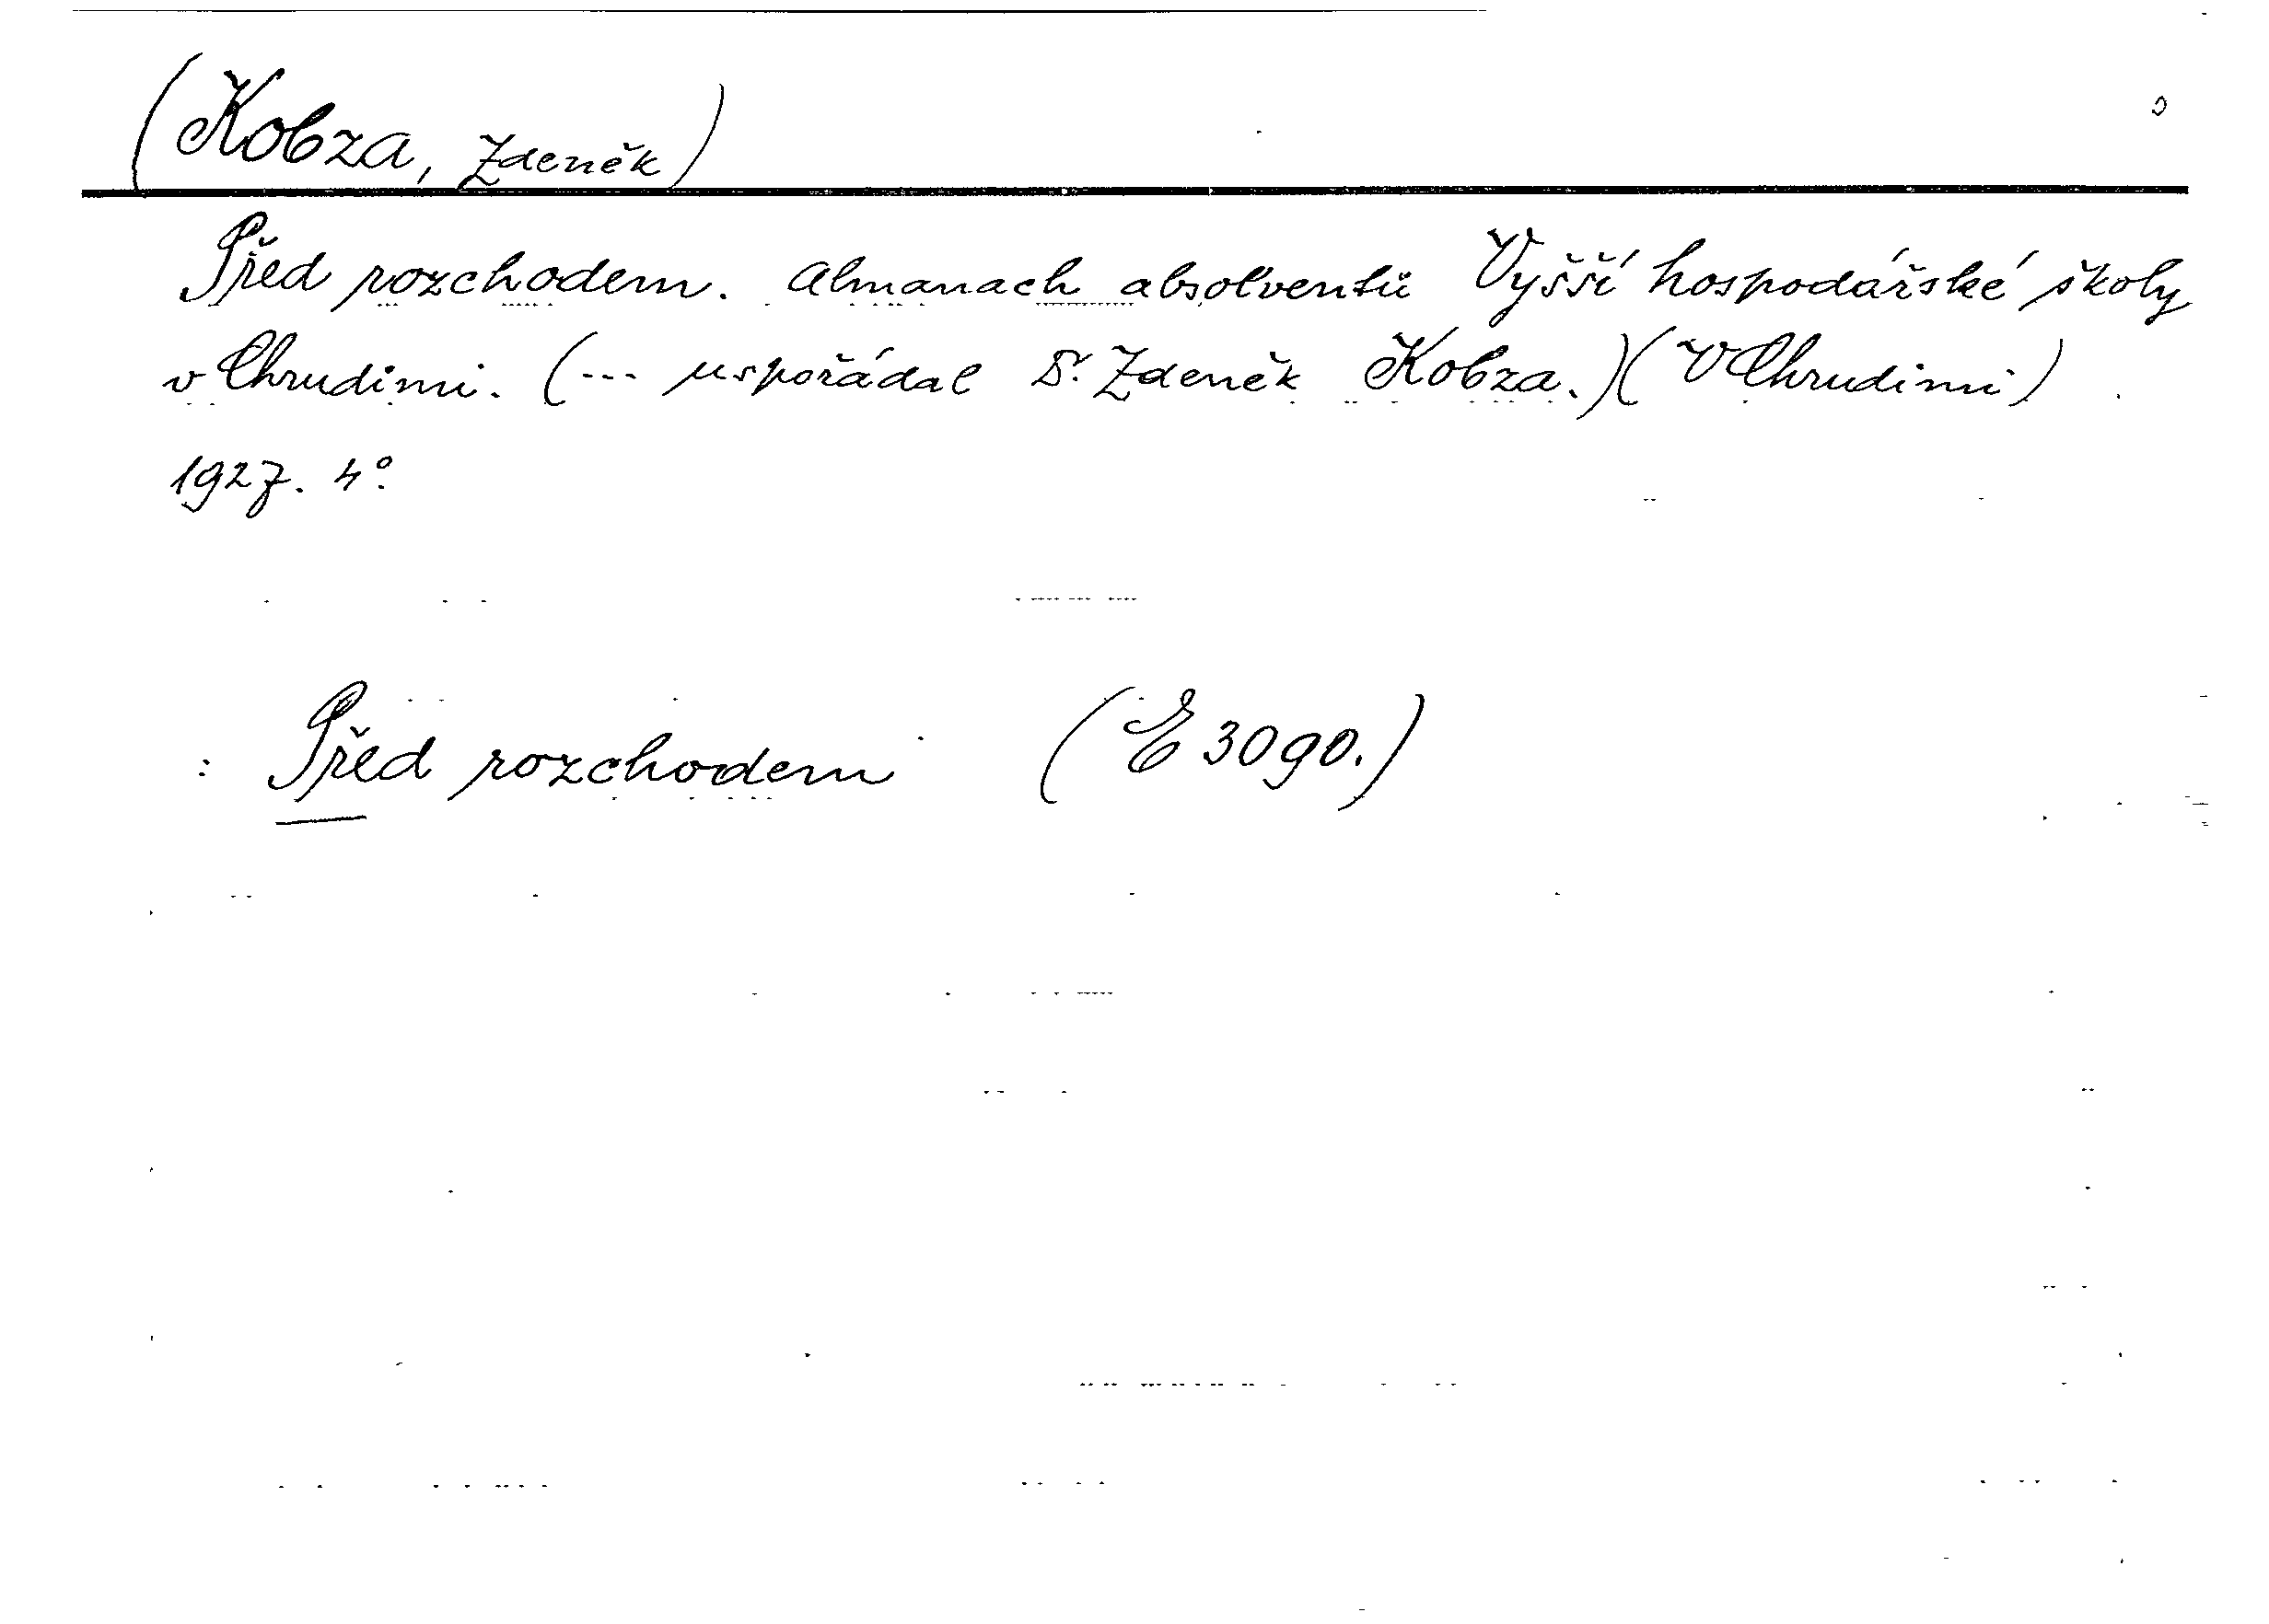 (Kobza, Zdeněk)
Před rozchodem. Almanach absolventů Vyšší hospodářské školy
v Chrudimi. (--- uspořádal Dr. Zdeněk Kobza.)(V Chrudimi)
1927. 4°.
: Před rozchodem (E 3090.)